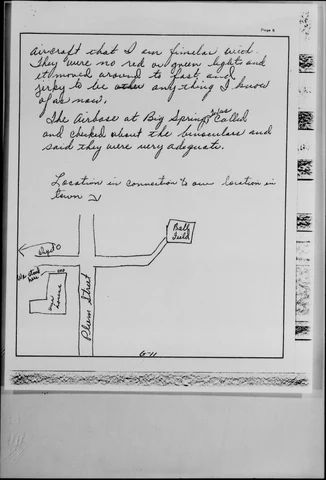 Page 5
aircraft that I am fimelar with.
They were no red or green lights and
it moved around to fast and
jerky to be other anything I know
of as now.
The Airbase at Big Springs, Texas Called
and checked about the binoculars and
said they were very adequate.
Location in connection to our location in
town
Ball
Field
Object
We stood
here
our
house
Plum Street